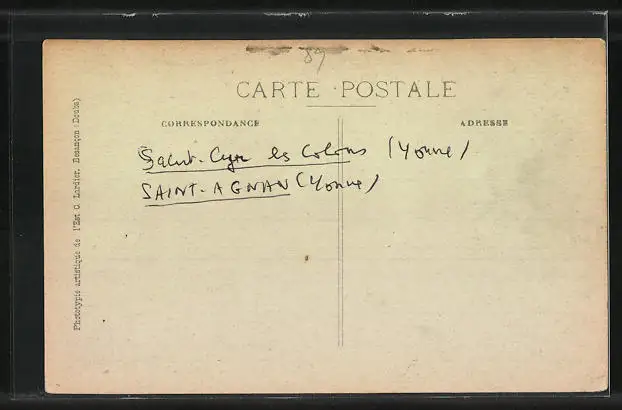 89
CARTE POSTALE
CORRESPONDANCE
ADRESSE
Saint-Cyr les Colons (Yonne)
SAINT-AGNAN (Yonne)
Phototypie artistique de l'Est C. Lardier, Besançon (Doubs)